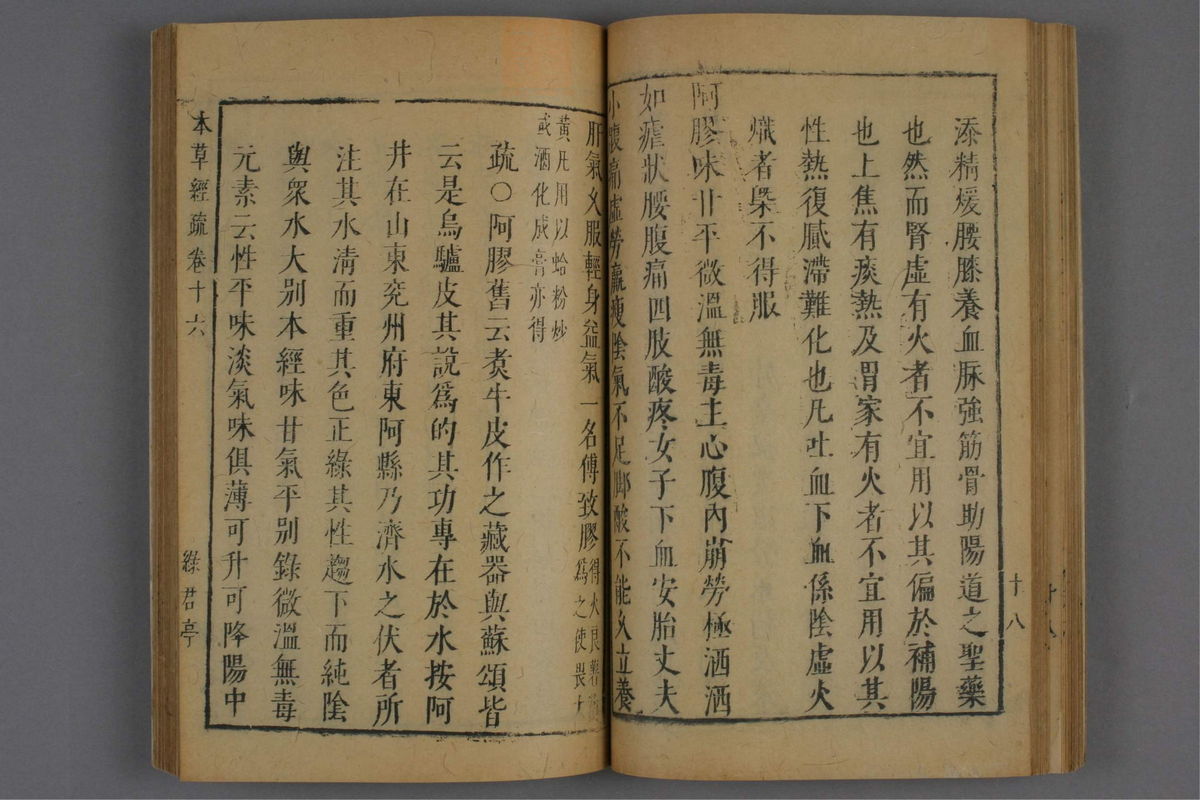 添精煖腰膝養血脉強筋骨助陽道之聖藥
也然而腎虛有火者不宜用以其偏於補陽
也上焦有痰熱及胃家有火者不宜用以其
性熱復膩滯難化也凡吐血下血係陰虛火
熾者槩不得服
阿膠味甘平微溫無毒主心腹內崩勞極洒洒
如瘧狀腰腹痛四肢酸疼女子下血安胎丈夫
小腹痛虛勞羸瘦陰氣不足脚酸不能久立養
十八
肝氣久服輕身益氣一名傅致膠得火良薯蕷
爲之使畏大
黃凡用以蛤粉炒
或酒化成膏亦得
疏○阿膠舊云煑牛皮作之藏器與蘇頌皆
云是烏驢皮其說爲的其功專在於水按阿
井在山東兖州府東阿縣乃濟水之伏者所
注其水清而重其色正綠其性趨下而純陰
與衆水大别本經味甘氣平别錄微溫無毒
元素云性平味淡氣味俱薄可升可降陽中
本草經疏 卷十六
綠君亭